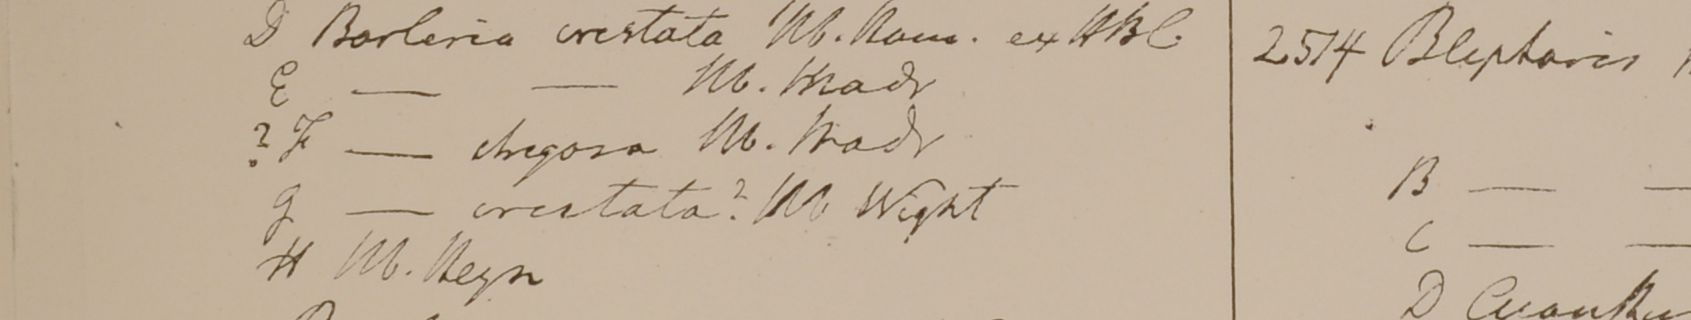 D Barleria cristata Hb. Ham. ex HBC.
E — — Hb. Madr
? F — strigosa Hb. Madr
G — cristata? Hb Wight
H Hb. Heyn
2574 Blepharis
B — —
C — —
D